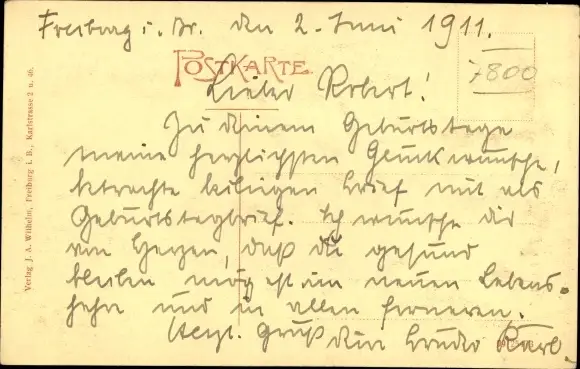 Freiburg i. Br. den 2. Juni 1911.
POSTKARTE
7800
Lieber Robert!
Zu deinem Geburtstage
meine herzlichsten Glückwünsche,
betrachte beiligen Brief mit als
Geburtstagbrief. Ich wünsche dir
von Herzen, daß du gesund
bleiben mögest im neuen Lebens-
jahre und in allen ferneren.
Herzl. Gruß dein Bruder Karl.
Verlag J. A. Wilhelm, Freiburg i. B., Karlstrasse 2 u. 40.